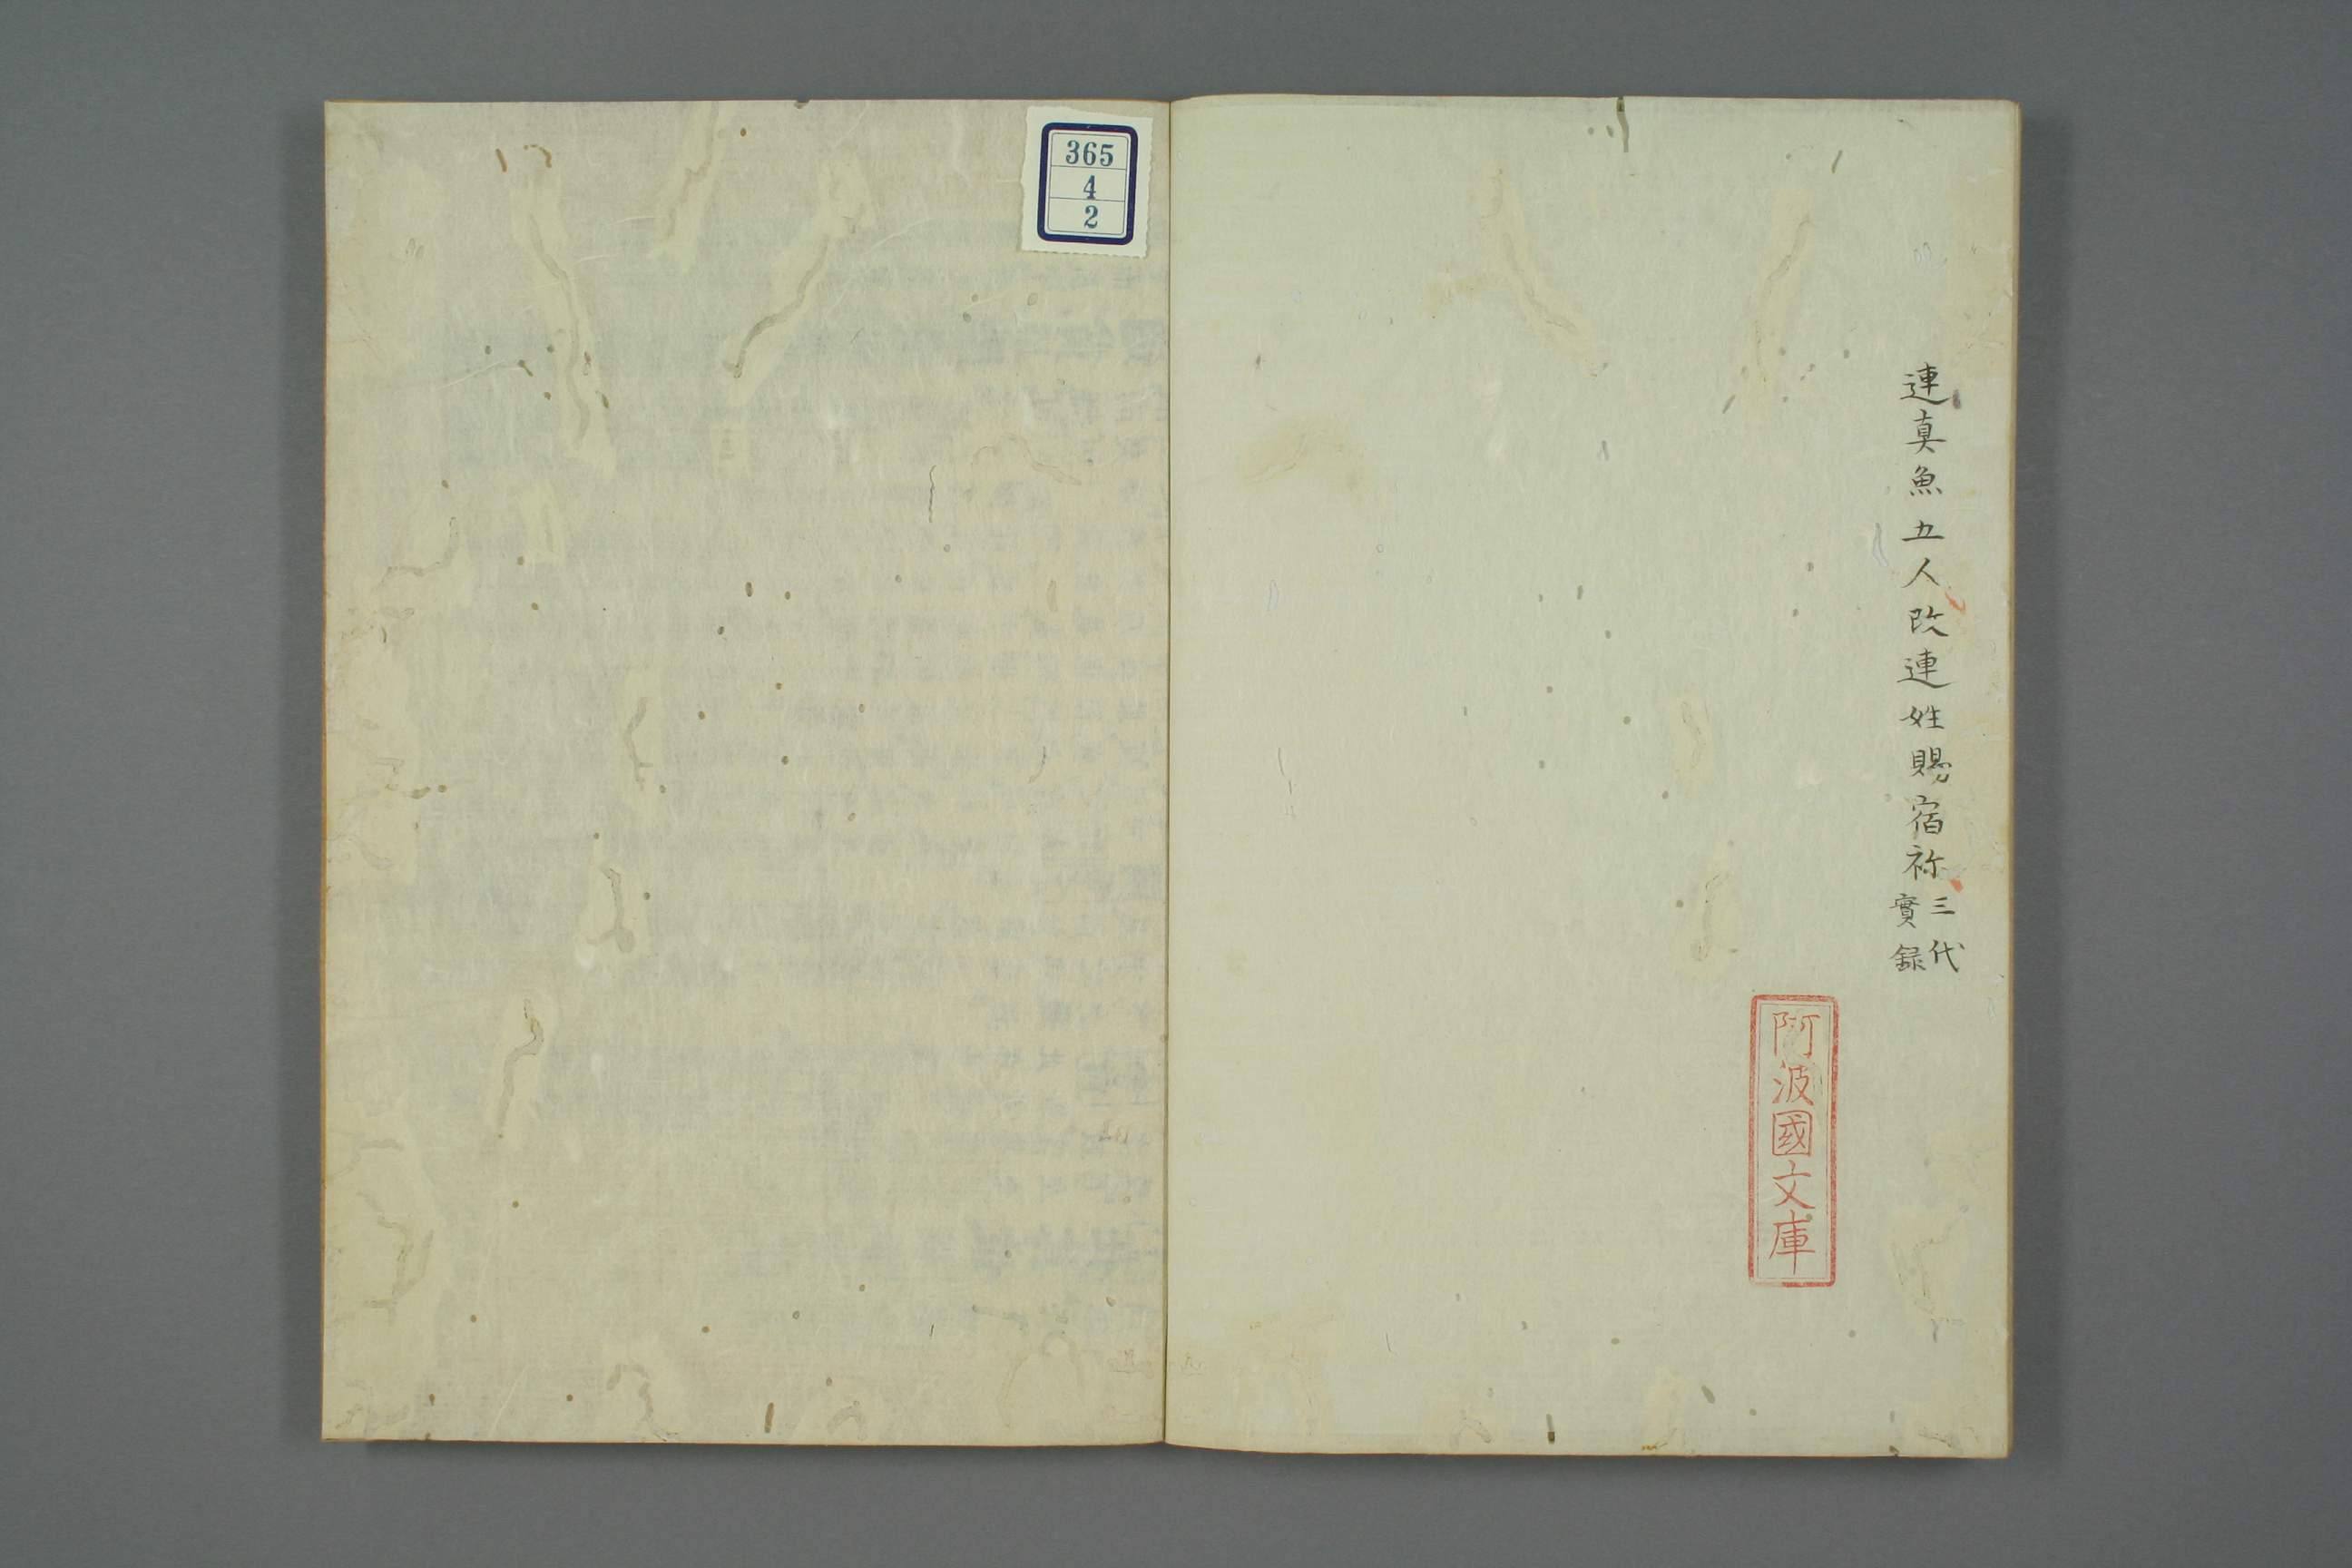 連真魚五人改連姓賜宿祢三代
實録
阿波國文庫
365
4
2